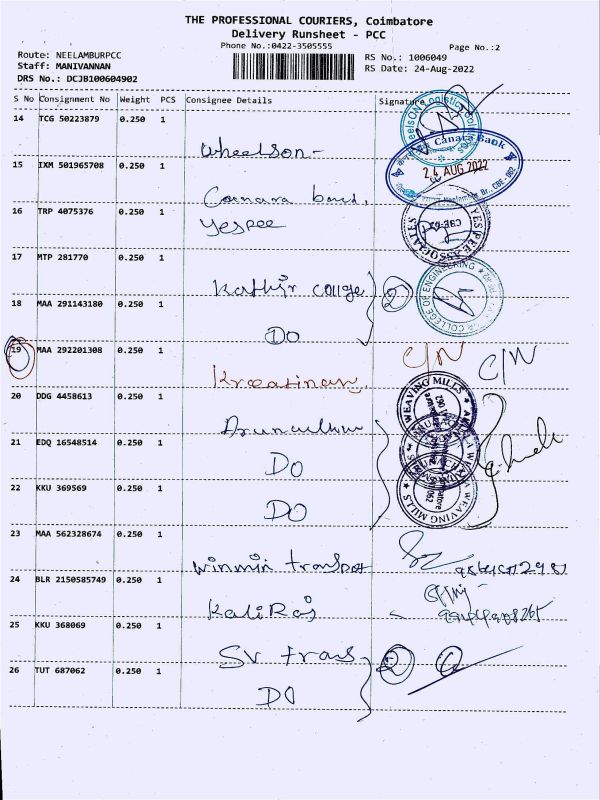 THE PROFESSIONAL COURIERS, Coimbatore
Delivery Runsheet - PCC
Phone No.:0422-3505555
Page No.:2
Route: NEELAMBURPCC
Staff: MANIVANNAN
DRS No.: DCJB100604902
RS No.: 1006049
RS Date: 24-Aug-2022
S No Consignment No Weight PCS Consignee Details Signature
14 TCG 50223879 0.250 1 Wheelson-
15 IXM 501965708 0.250 1 Canara
Canara Bank
24 AUG 2022
16 TRP 4075376 0.250 1 Yespee
YESPEE ASSOCIATES
17 MTP 281770 0.250 1 Kathir college 2
COLLEGE OF ENGINEERING
18 MAA 291143180 0.250 1 DO
19 MAA 292201308 0.250 1 C/N C/N
20 DDG 4458613 0.250 1
WEAVING MILLS
21 EDQ 16548514 0.250 1 DO
22 KKU 369569 0.250 1 DO
WEAVING MILLS
23 MAA 562328674 0.250 1 Winmin transpot
24 BLR 2150585749 0.250 1 KaliRaj
25 KKU 368069 0.250 1 SV trans 2
26 TUT 687062 0.250 1 DO